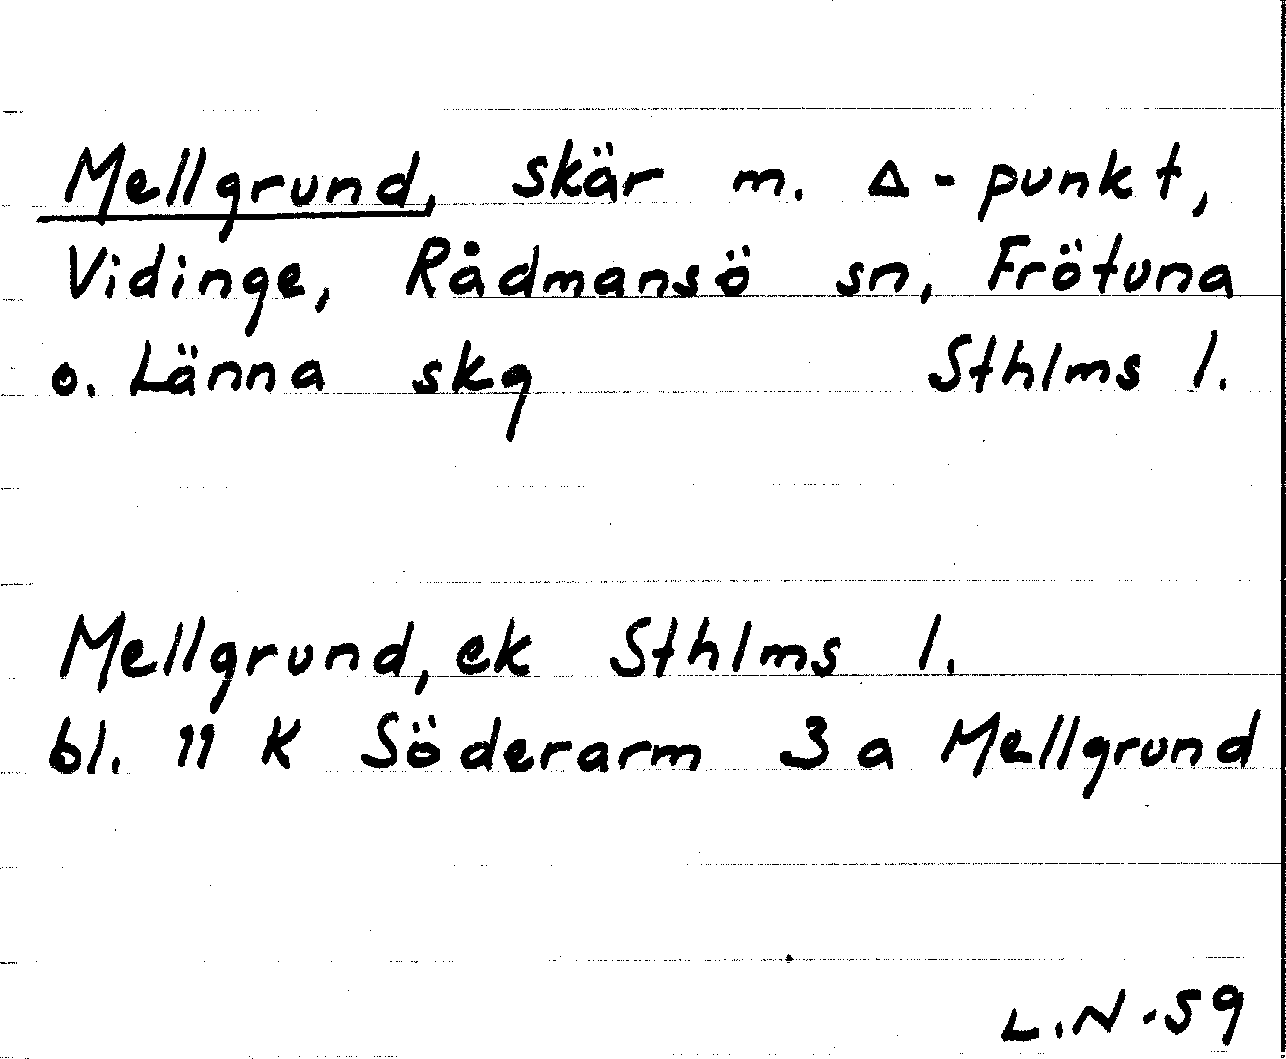 Mellgrund, skär m. Δ-punkt,
Vidinge, Rådmansö sn, Frötuna
o. Länna skg Sthlms l.
Mellgrund, ek Sthlms l.
bl. 11 K Söderarm 3 a Mellgrund
L.N.59